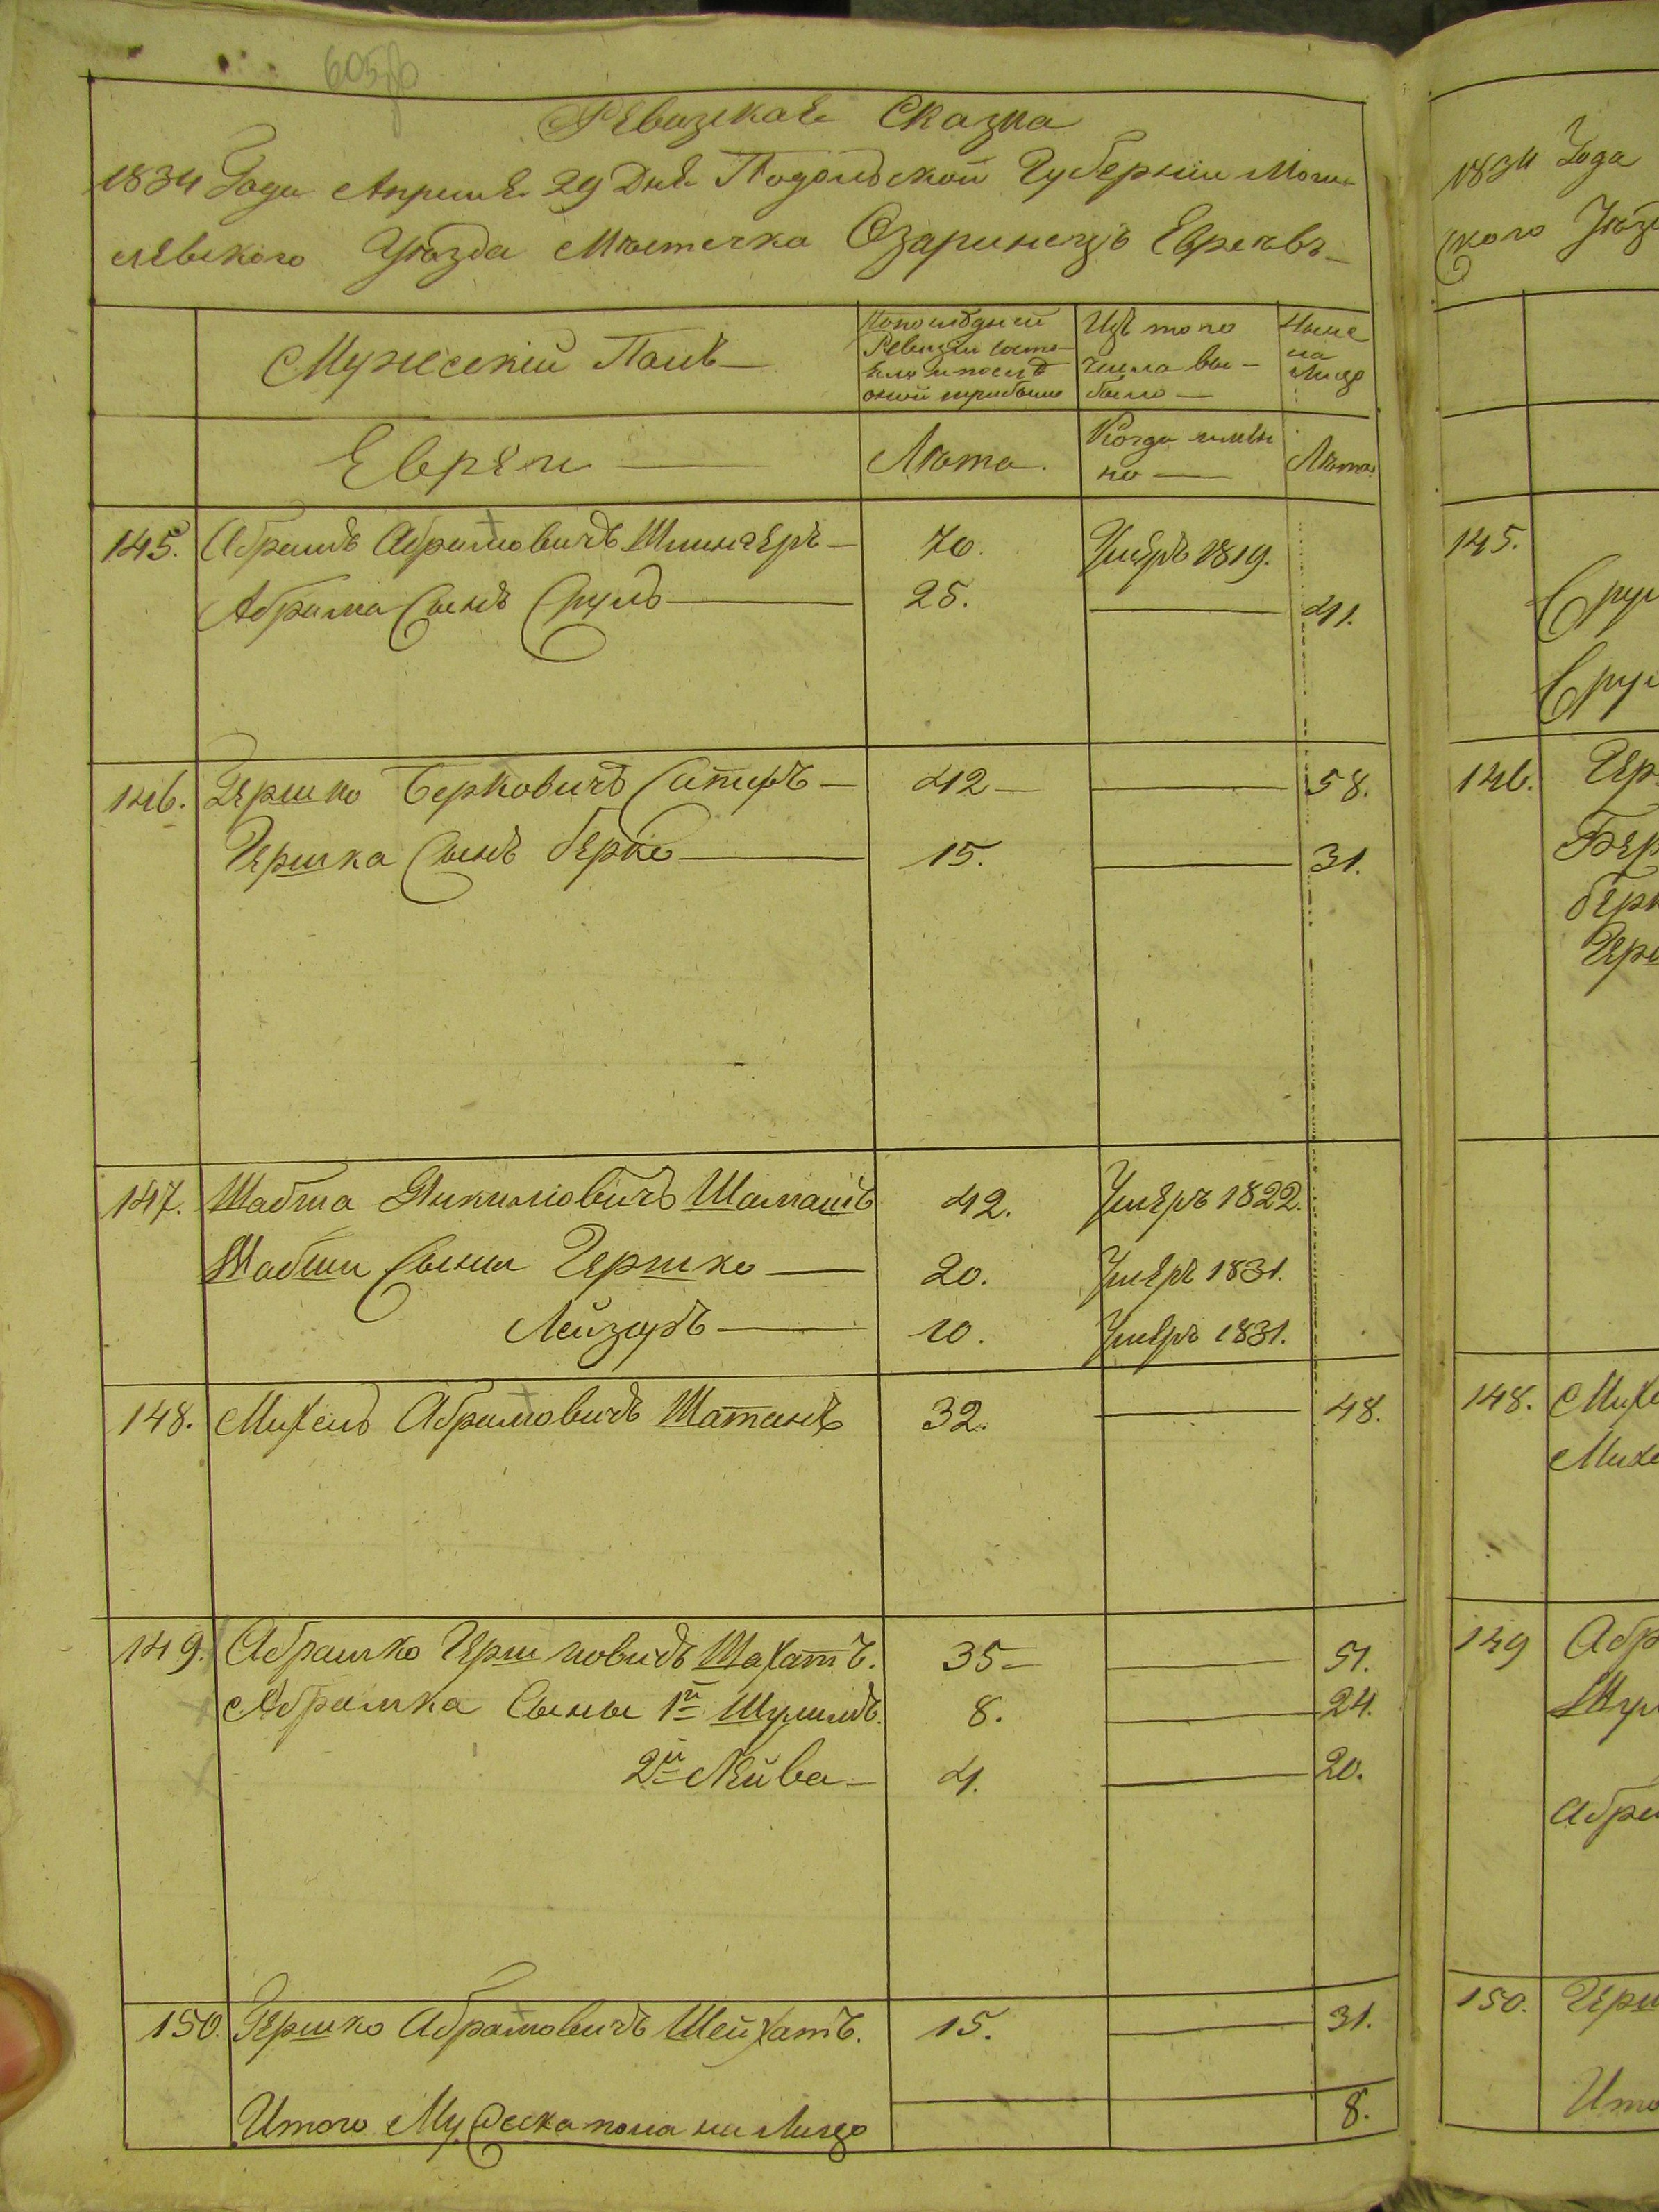 605об
Ревизская Сказка
1834 Года Апреля 29 Дня Подольской Губернии Моги-
левского Уезда Местечка Озаринецъ Евреевъ
Мужескій Полъ
По последней Ревизіи состо- яло и после оной прибыло
Изъ того числа вы- было
Ныне на лицо
Евреи
Лѣта.
Когда имен но
Лѣта
145. Абрамъ Абрамовичъ 70. Умеръ 1819.
Абрама Сынъ Сруль 25. 41.
146. Гершко Берковичъ 42 58.
Гершка Сынъ Берко 15. 31.
147. Шабша Шамашъ 42. Умеръ 1822.
Шабши Сыны Гершко 20. Умеръ 1831.
Лейзеръ 10. Умеръ 1831.
148. Михель Абрамовичъ 32. 48.
149. Абрамко Гершковичъ Шахатъ. 35 51.
Абрамка Сыны 1й Шулимъ. 8. 24.
2й Лейва 4. 20.
150 Гершко Абрамовичъ Шейхатъ. 15. 31.
Итого Мужеска пола на Лицо 8.
1834 Года
ского
145.
146.
148.
149
150.